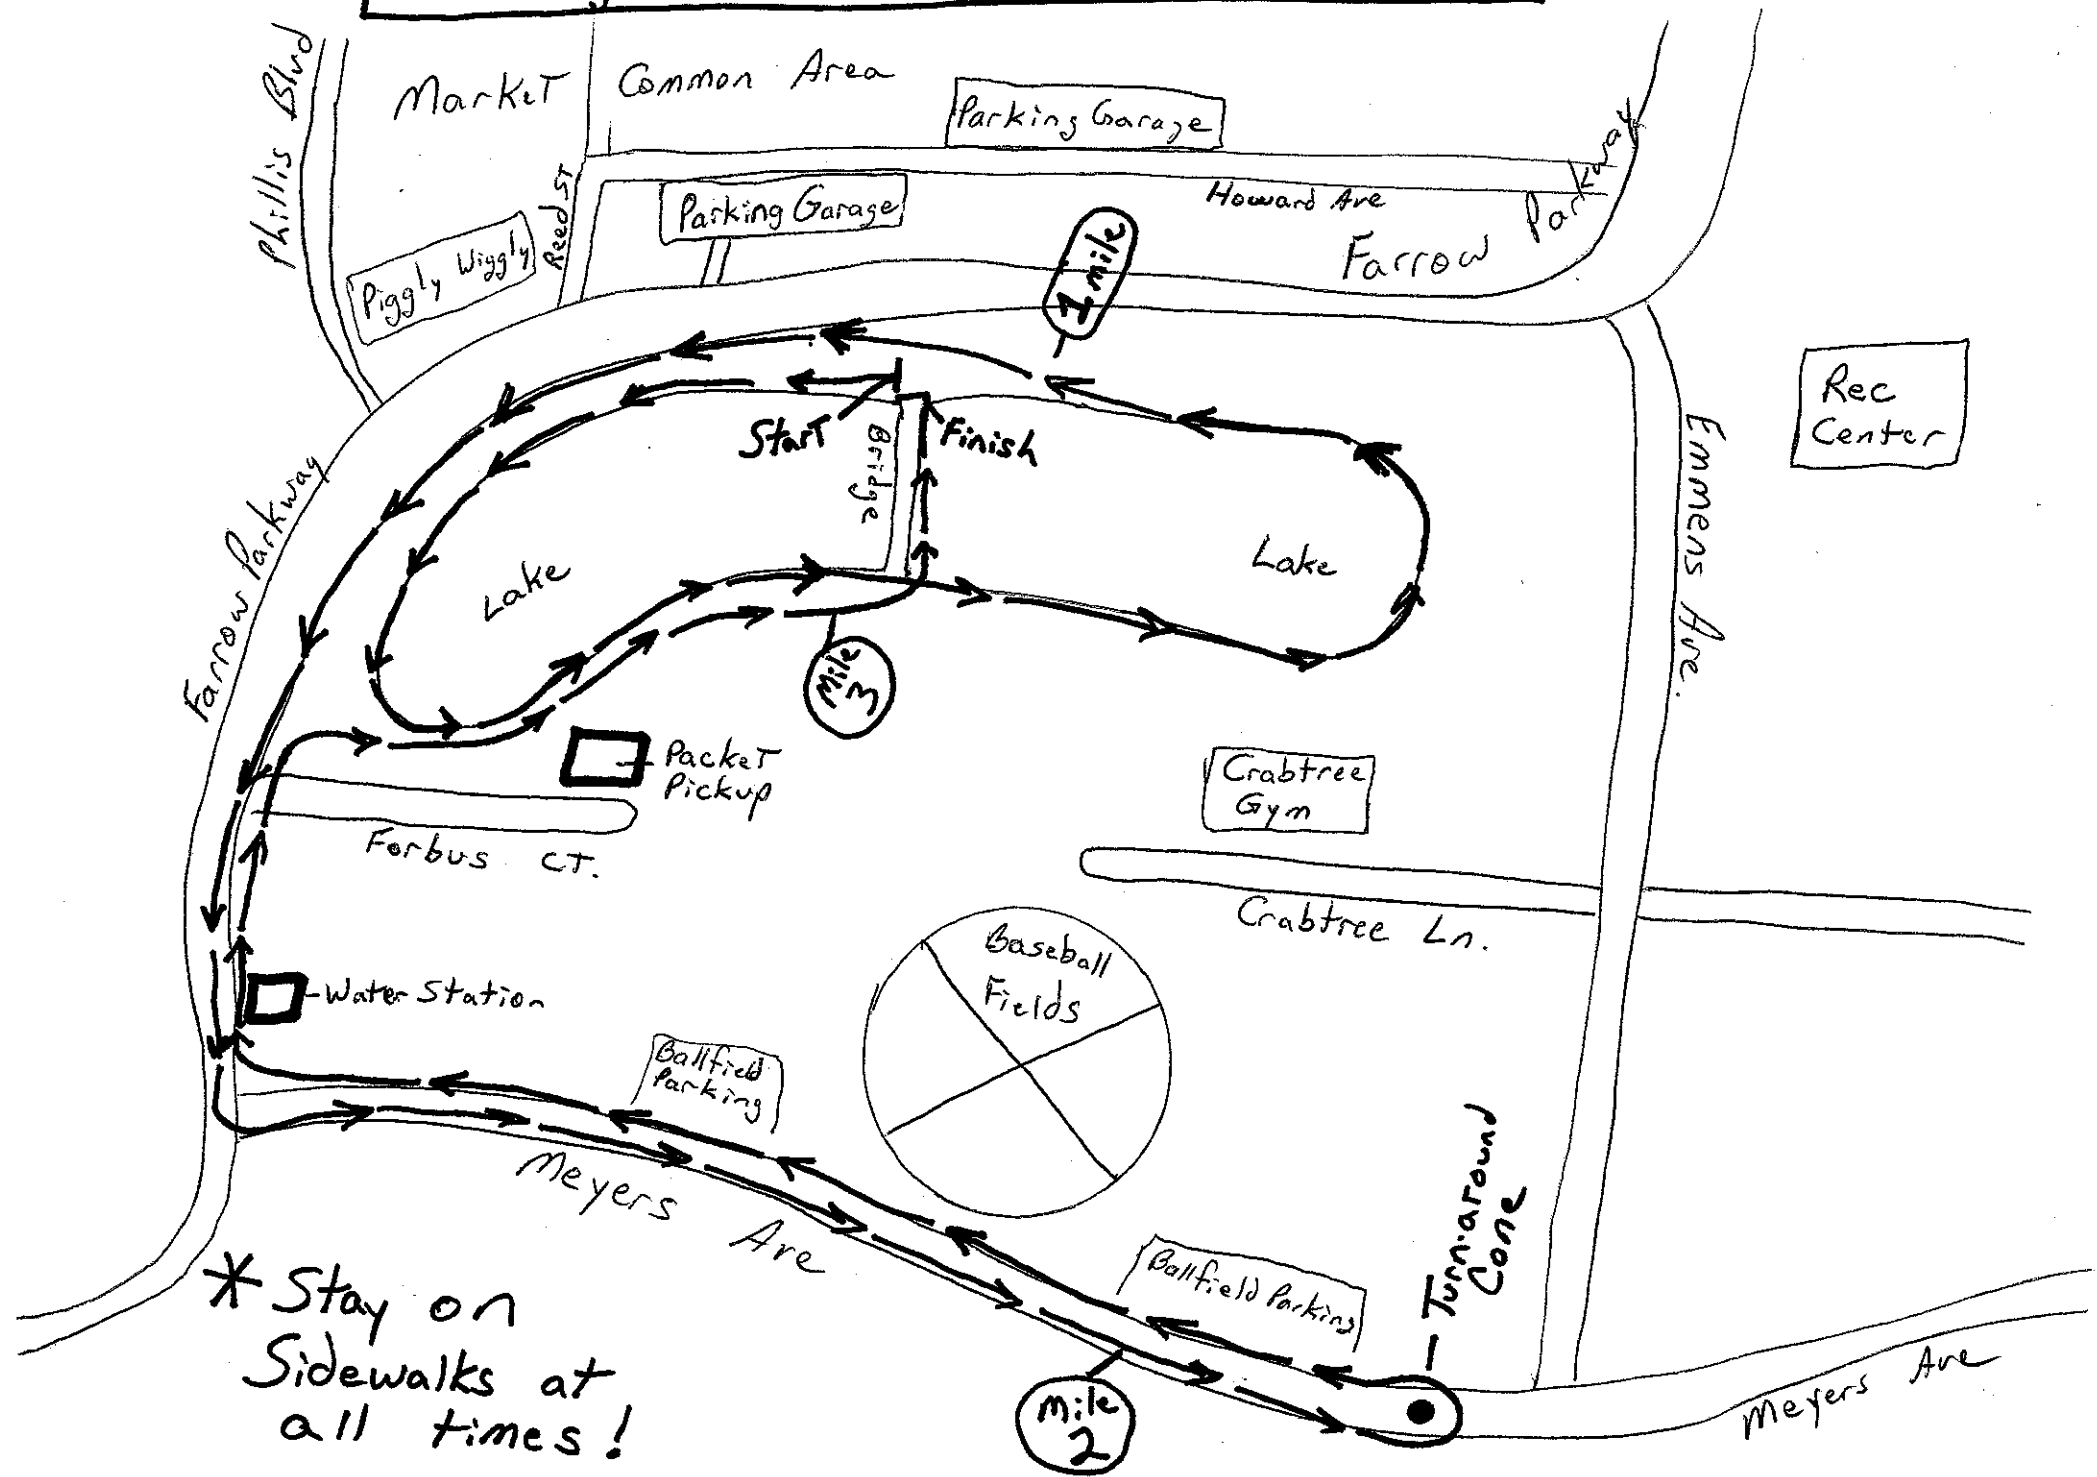 Phillis Blvd
Market
Common Area
Parking Garage
Reed ST
Parking Garage
Howard Ave
Farrow
Parkway
Piggly Wiggly
1 mile
Rec
Center
Start
Finish
Bridge
Emmens Ave.
Farrow Parkway
Lake
Lake
Mile
3
Packet
Pickup
Crabtree
Gym
Forbus CT.
Crabtree Ln.
Baseball
Fields
Water Station
Ballfield
Parking
Meyers Ave
Turn-around
Cone
Ballfield Parking
* Stay on
Sidewalks at
all times!
Mile
2
Meyers Ave